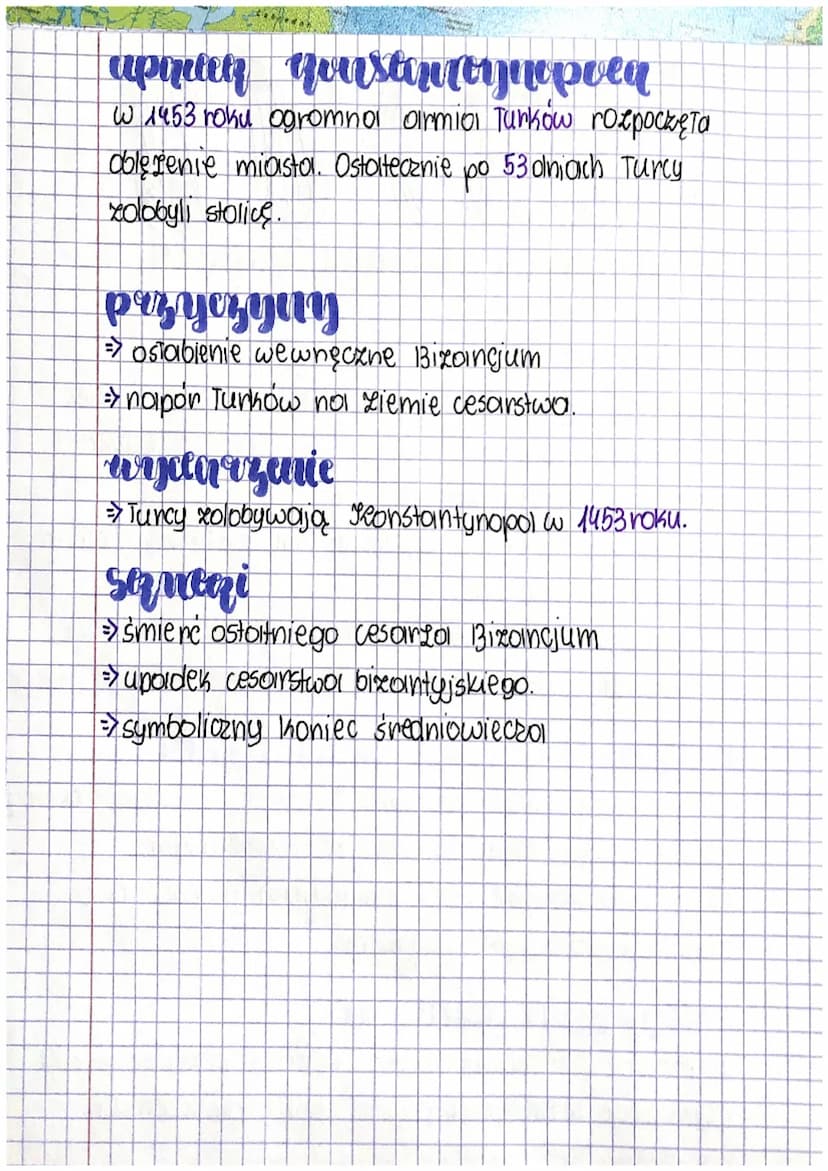 upadek Konstantynopola
W 1453 roku ogromna armia Turków rozpoczęła
oblężenie miasta. Ostatecznie po 53 dniach Turcy
zdobyli stolicę.
przyczyny
⇒ osłabienie wewnęczne Bizancjum
⇒ napór Turków na ziemie cesarstwa.
wydarzenie
⇒ Turcy zdobywają Konstantynopol w 1453 roku.
skutki
⇒ śmierć ostatniego cesarza Bizancjum
⇒ upadek cesarstwa bizantyjskiego.
⇒ symboliczny koniec średniowiecza